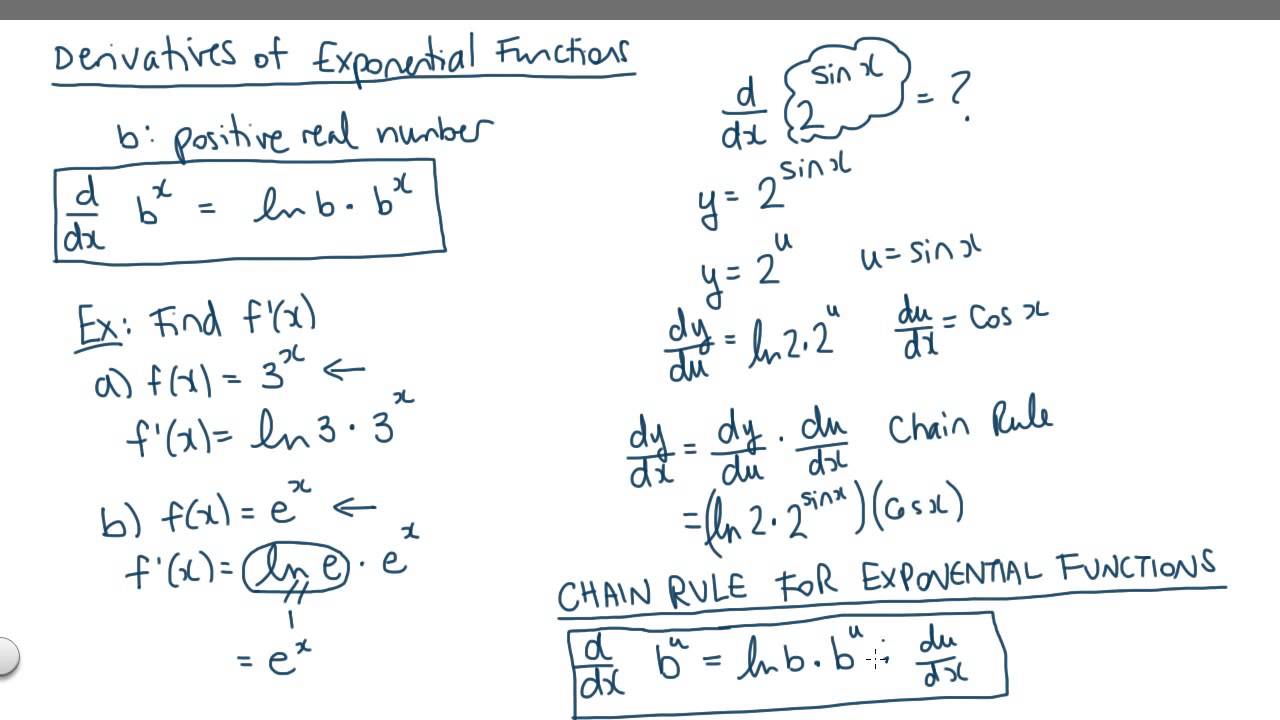 Derivatives of Exponential Functions
b: positive real number
d/dx b^x = ln b · b^x
Ex: Find f'(x)
a) f(x) = 3^x ←
f'(x) = ln 3 · 3^x
b) f(x) = e^x ←
f'(x) = ln e · e^x
1
= e^x
d/dx 2^sin x = ?
y = 2^sin x
y = 2^u u = sin x
dy/du = ln 2 · 2^u du/dx = Cos x
dy/dx = dy/du · du/dx Chain Rule
= (ln 2 · 2^sin x)(Cos x)
CHAIN RULE FOR EXPONENTIAL FUNCTIONS
d/dx b^u = ln b · b^u · du/dx